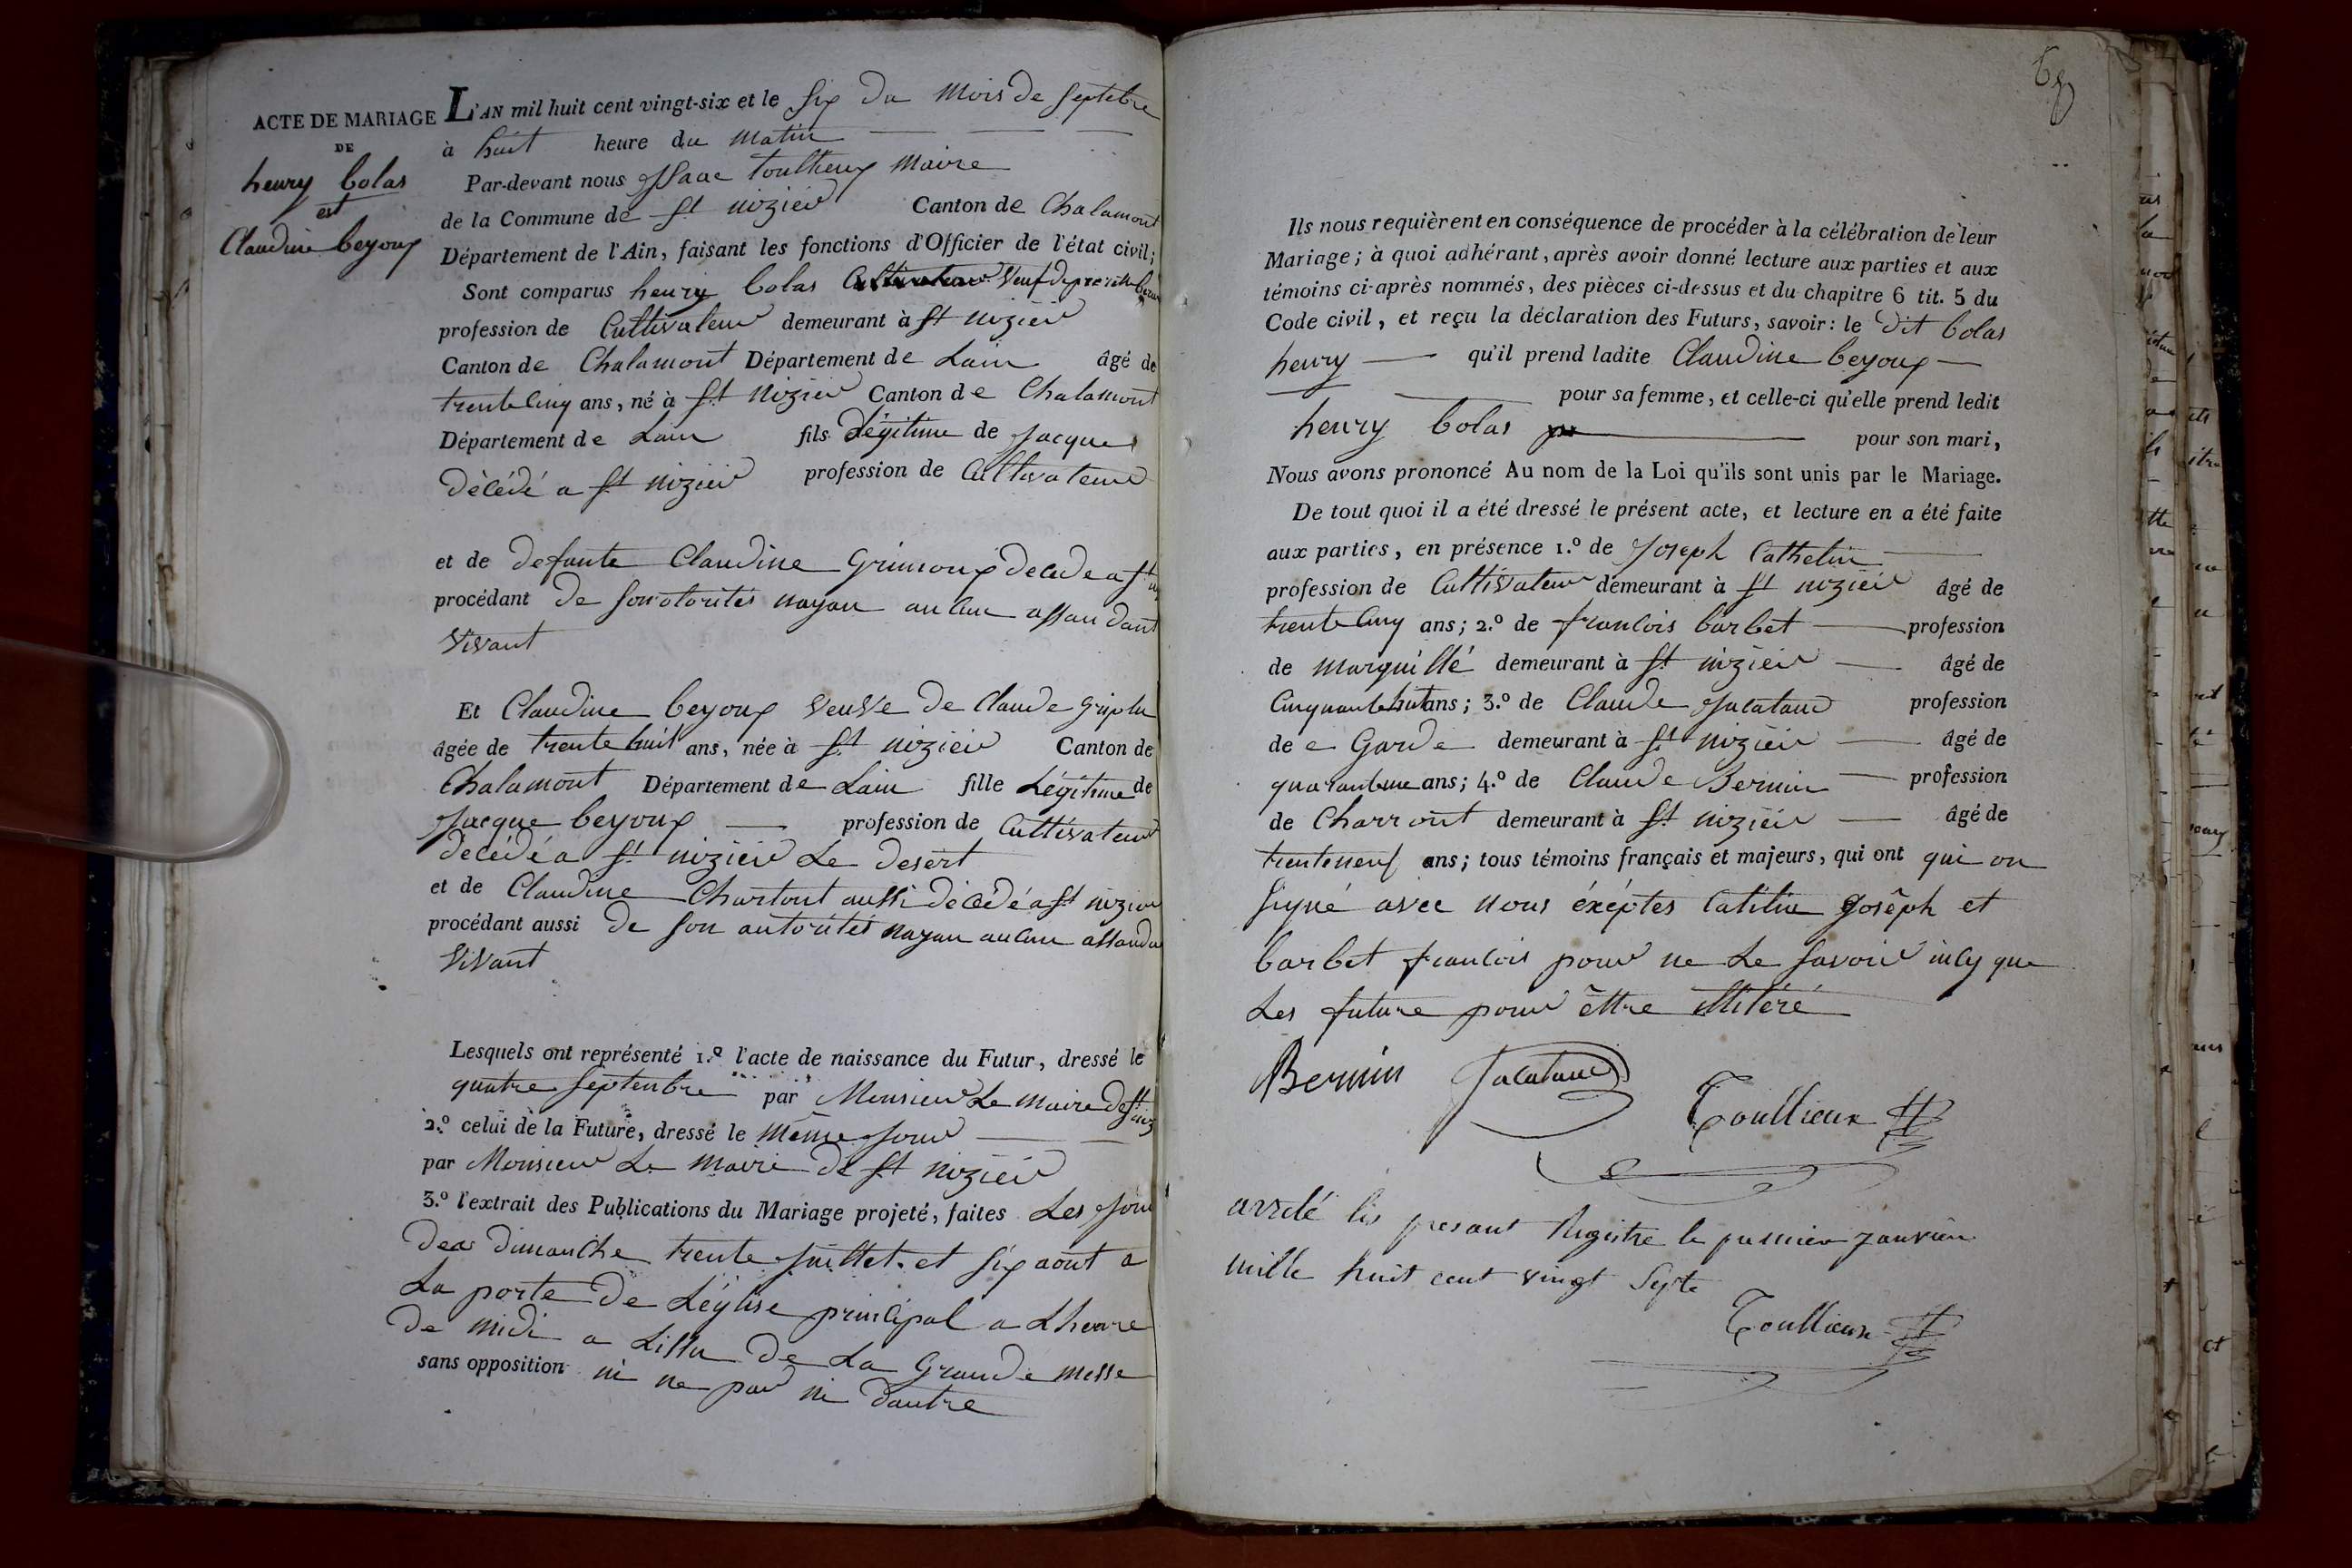 ACTE DE MARIAGE
DE
henry bolas
et
Claudine beyoux
L'AN mil huit cent vingt-six et le six du mois de septebre
à huit heure du matin
Par-devant nous issaac toulheux maire
de la Commune de st nizier Canton de Chalamont
Département de l'Ain, faisant les fonctions d'Officier de l'état civil;
Sont comparus henry bolas Cultivateur veuf de
profession de Cultivateur demeurant à st nizier
Canton de Chalamont Département de Lain âgé de
trente cinq ans, né à st nizier Canton de Chalamont
Département de Lain fils Légitime de jacques
décédé a st nizier profession de Cultivateur
et de defunte Claudine Grimoux decede a st
procédant de son otorités nayan aucun assandant
vivant
Et Claudine beyoux veuve de Claude
âgée de trente huit ans, née à st nizier Canton de
Chalamont Département de Lain fille Légitime de
jacque beyoux profession de Cultivateur
décédé a st nizier Le desert
et de Claudine Chartout aussi décédé a st nizier
procédant aussi de son autorités nayan aucun assanda
vivant
Lesquels ont représenté 1.º l'acte de naissance du Futur, dressé le
quatre septenbre par Monsieur Le maire de st niz
2.º celui de la Future, dressé le même jour
par Monsieur Le maire de st nizier
3.º l'extrait des Publications du Mariage projeté, faites Les jour
deas dimanche trente juillet. et six août a
La porte de Léglise principal a Lheure
de midi a Lissu de La Grande messe
sans opposition ni ne par ni dautre
68
Ils nous requièrent en conséquence de procéder à la célébration de leur
Mariage; à quoi adhérant, après avoir donné lecture aux parties et aux
témoins ci-après nommés, des pièces ci-dessus et du chapitre 6 tit. 5 du
Code civil, et reçu la déclaration des Futurs, savoir: le dit bolas
henry qu'il prend ladite Claudine beyoux
pour sa femme, et celle-ci qu'elle prend ledit
henry bolas pour son mari,
Nous avons prononcé Au nom de la Loi qu'ils sont unis par le Mariage.
De tout quoi il a été dressé le présent acte, et lecture en a été faite
aux parties, en présence 1.º de joseph Cathelin
profession de Cultivateur demeurant à st nizier âgé de
trente cinq ans; 2.º de francois barbet profession
de marguillé demeurant à st nizier âgé de
Cinquante huit ans; 3.º de Claude jacataud profession
de e Garde demeurant à st nizier âgé de
ans; 4.º de Claude Bernin profession
de Charront demeurant à st nizier âgé de
trenteneuf ans; tous témoins français et majeurs, qui ont qui on
signé avec nous éxéptes Catilin joséph et
barbet francois pour ne Le savoir incy que
Les future pour êttre illitéré
Bernin Jacataud
Toullieux
arrêté lis presant Registre le premier janvier
mille huit cent vingt septe
Toullieux